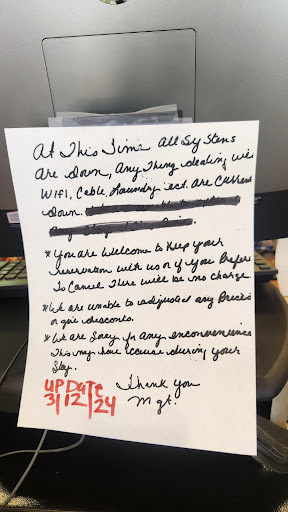 At This Time All Systens
Are Down, Any Thing dealing with
WIFI, Cable, Laundry ect. Are Currend
Down.
* You are welcome to Keep your
reservation with us or if you Prefer
To Cancel There will be no charge
* We are unable to adjusted any Preci
or give descounts.
* We are Sorry for Any Inconvenience
This may have Cause during your
Stay.
UPDATE Thank you
3/12/24 Mgt.